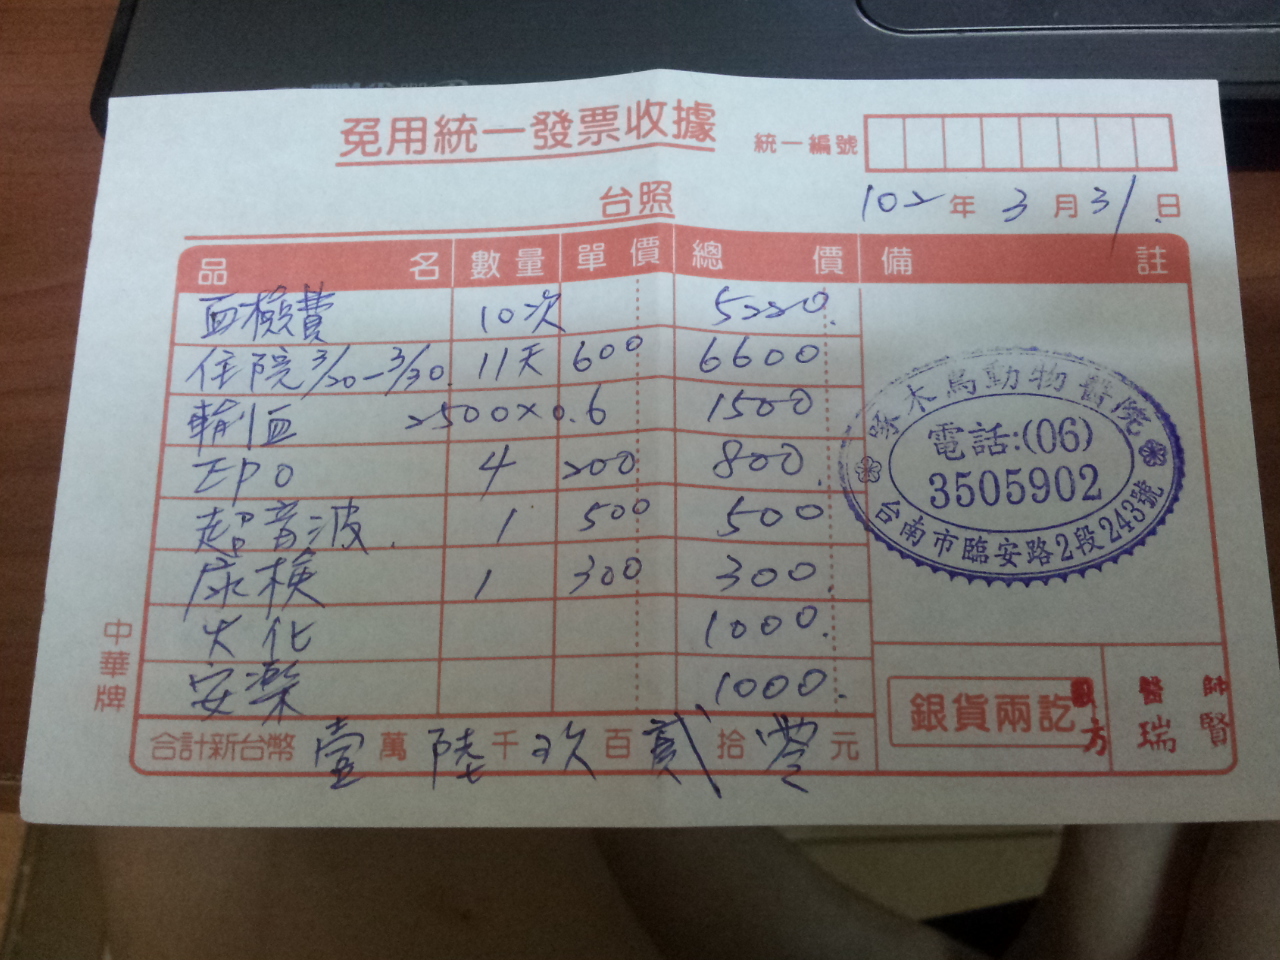 免用統一發票收據
統一編號
台照
102年3月31日
品名 數量 單價 總價 備註
血檢費 10次 5220.
住院 3/20-3/30. 11天 600 6600
輸血 2500×0.6 1500
EPO 4 200 800.
超音波. 1 500 500
尿檢 1 300 300.
火化 1000.
安樂 1000.
合計新台幣 壹萬陸千玖百貳拾零元
啄木鳥動物醫院
電話:(06)
3505902
台南市臨安路2段243號
銀貨兩訖
醫師
方瑞賢
中華牌